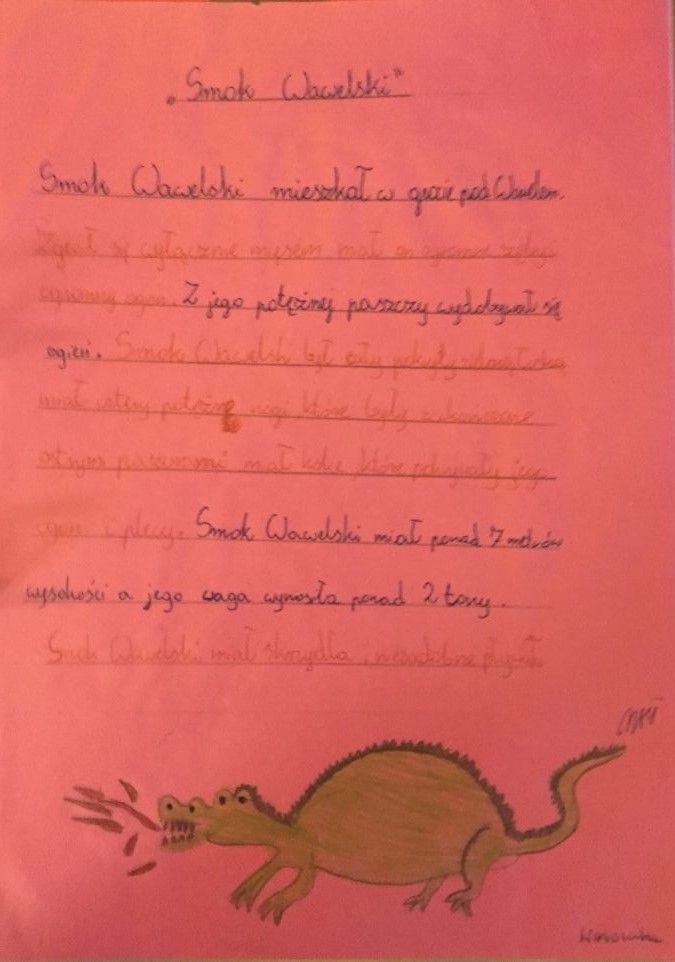 „Smok Wawelski"
Smok Wawelski mieszkał w grocie pod Wawelem.
Żywił się wyłącznie mięsem miał on ogromne zęby i
ogromny ogon. Z jego potężnej paszczy wydobywał się
ogień. Smok Wawelski był cały pokryty
miał cztery potężne nogi, które były zakończone
ostrymi pazurami miał kolce, które pokrywały jego
ogon i plecy. Smok Wawelski miał ponad 7 metrów
wysokości a jego waga wynosiła ponad 2 tony.
Smok Wawelski miał skrzydła i
Weronika